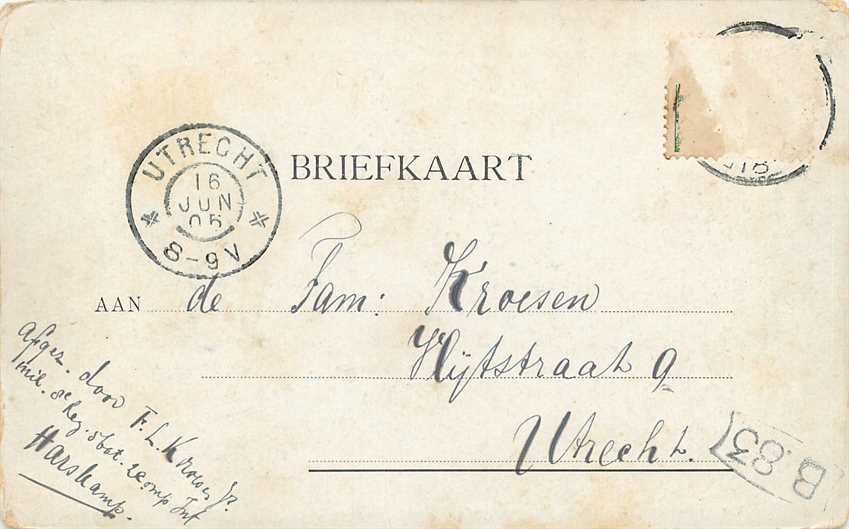 UTRECHT
16
JUN
05
8-9V
BRIEFKAART
AAN de Fam: Kroesen
Wijtstraat 9
Utrecht.
B.83
Afgez. door F. L. Kroesen Jr.
mil. 8e Reg. 5 bat. 2e comp Inf
Harskamp.